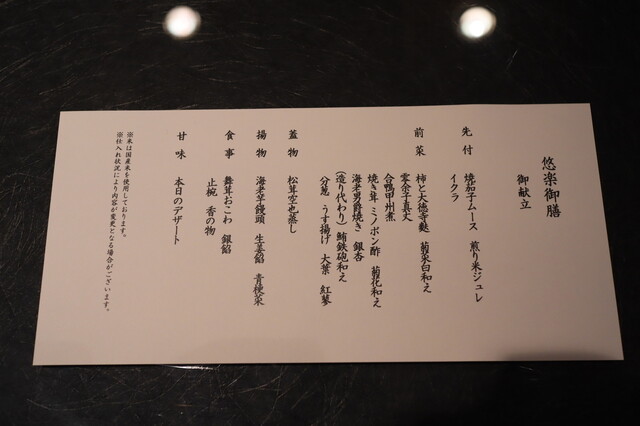 悠楽御膳
御献立
先付 焼茄子ムース 煎り米ジュレ
イクラ
前菜 柿と大徳寺麩 菊菜白和え
零余子真丈
合鴨甲州煮
焼き茸 ミノポン酢 菊花和え
海老男爵焼き 銀杏
(造り代わり) 鮪鉄砲和え
分葱 うす揚げ 大葉 紅蓼
蓋物 松茸空也蒸し
揚物 海老芋饅頭 生姜餡 青梗菜
食事 舞茸おこわ 銀餡
止椀 香の物
甘味 本日のデザート
※米は国産米を使用しております。
※仕入れ状況により内容が変更となる場合がございます。